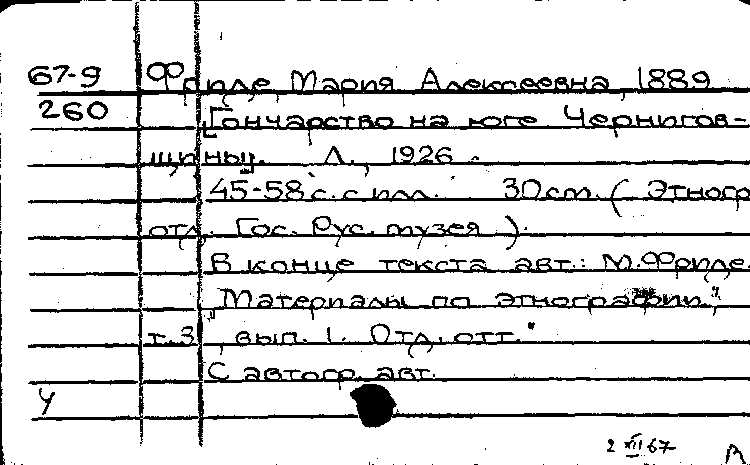 67-9 Фриде, Мария Алексеевна, 1889
260 [Гончарство на юге Чернигов-
щины]. Л., 1926.
45-58 с. с илл. 30 cm. (Этногр
отд. Гос. Рус. музея).
В конце текста авт.: М. Фриде.
"Материалы по этнографии",
т. 3, вып. 1. Отд. отт.
С автогр. авт.
У
2 XII 67